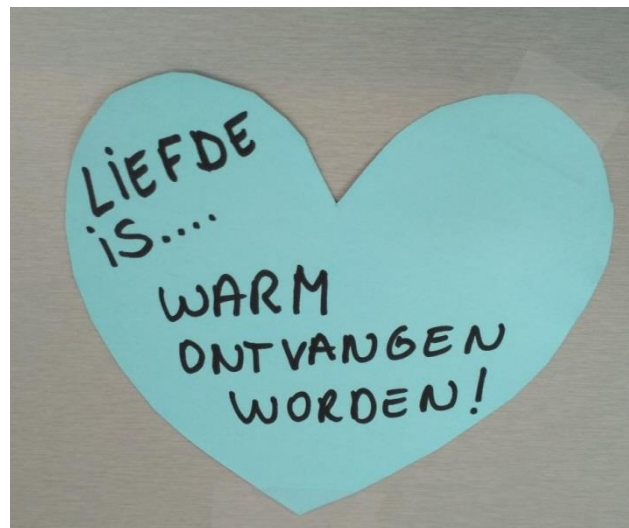 LiEFDE
iS....
WARM
ONTVANGEN
WORDEN!